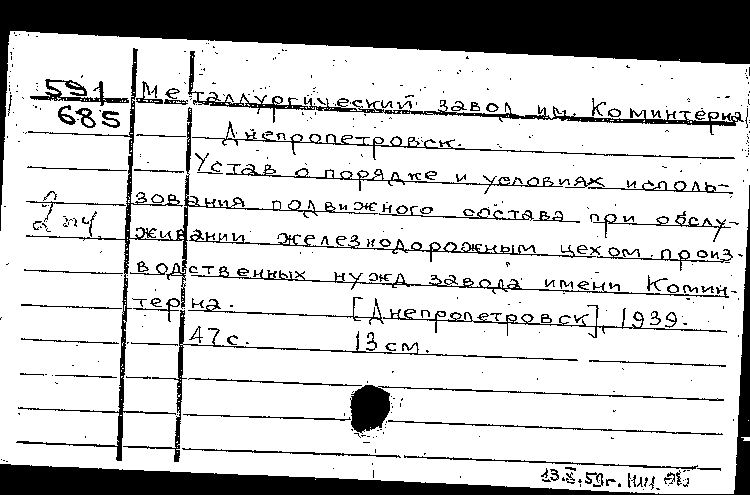 591 Металлургический завод им. Коминтерна
685
Днепропетровск.
Устав о порядке и условиях исполь-
зования подвижного состава при обслу-
живании железнодорожным цехом произ-
водственных нужд завода имени Комин-
терна. [Днепропетровск], 1939.
47 с. 13 см.
13.X.59г.